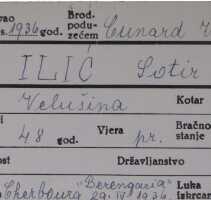 vao Brod.
s. 1936 god. podu- Cunard
zećem
ILIĆ Sotir
Velušina Kotar
48 god. Vjera pr. Bračno
stanje
ost Državljanstvo
Cherbourg "Berengaria" Luka
29.IV.1936. Izkrcan